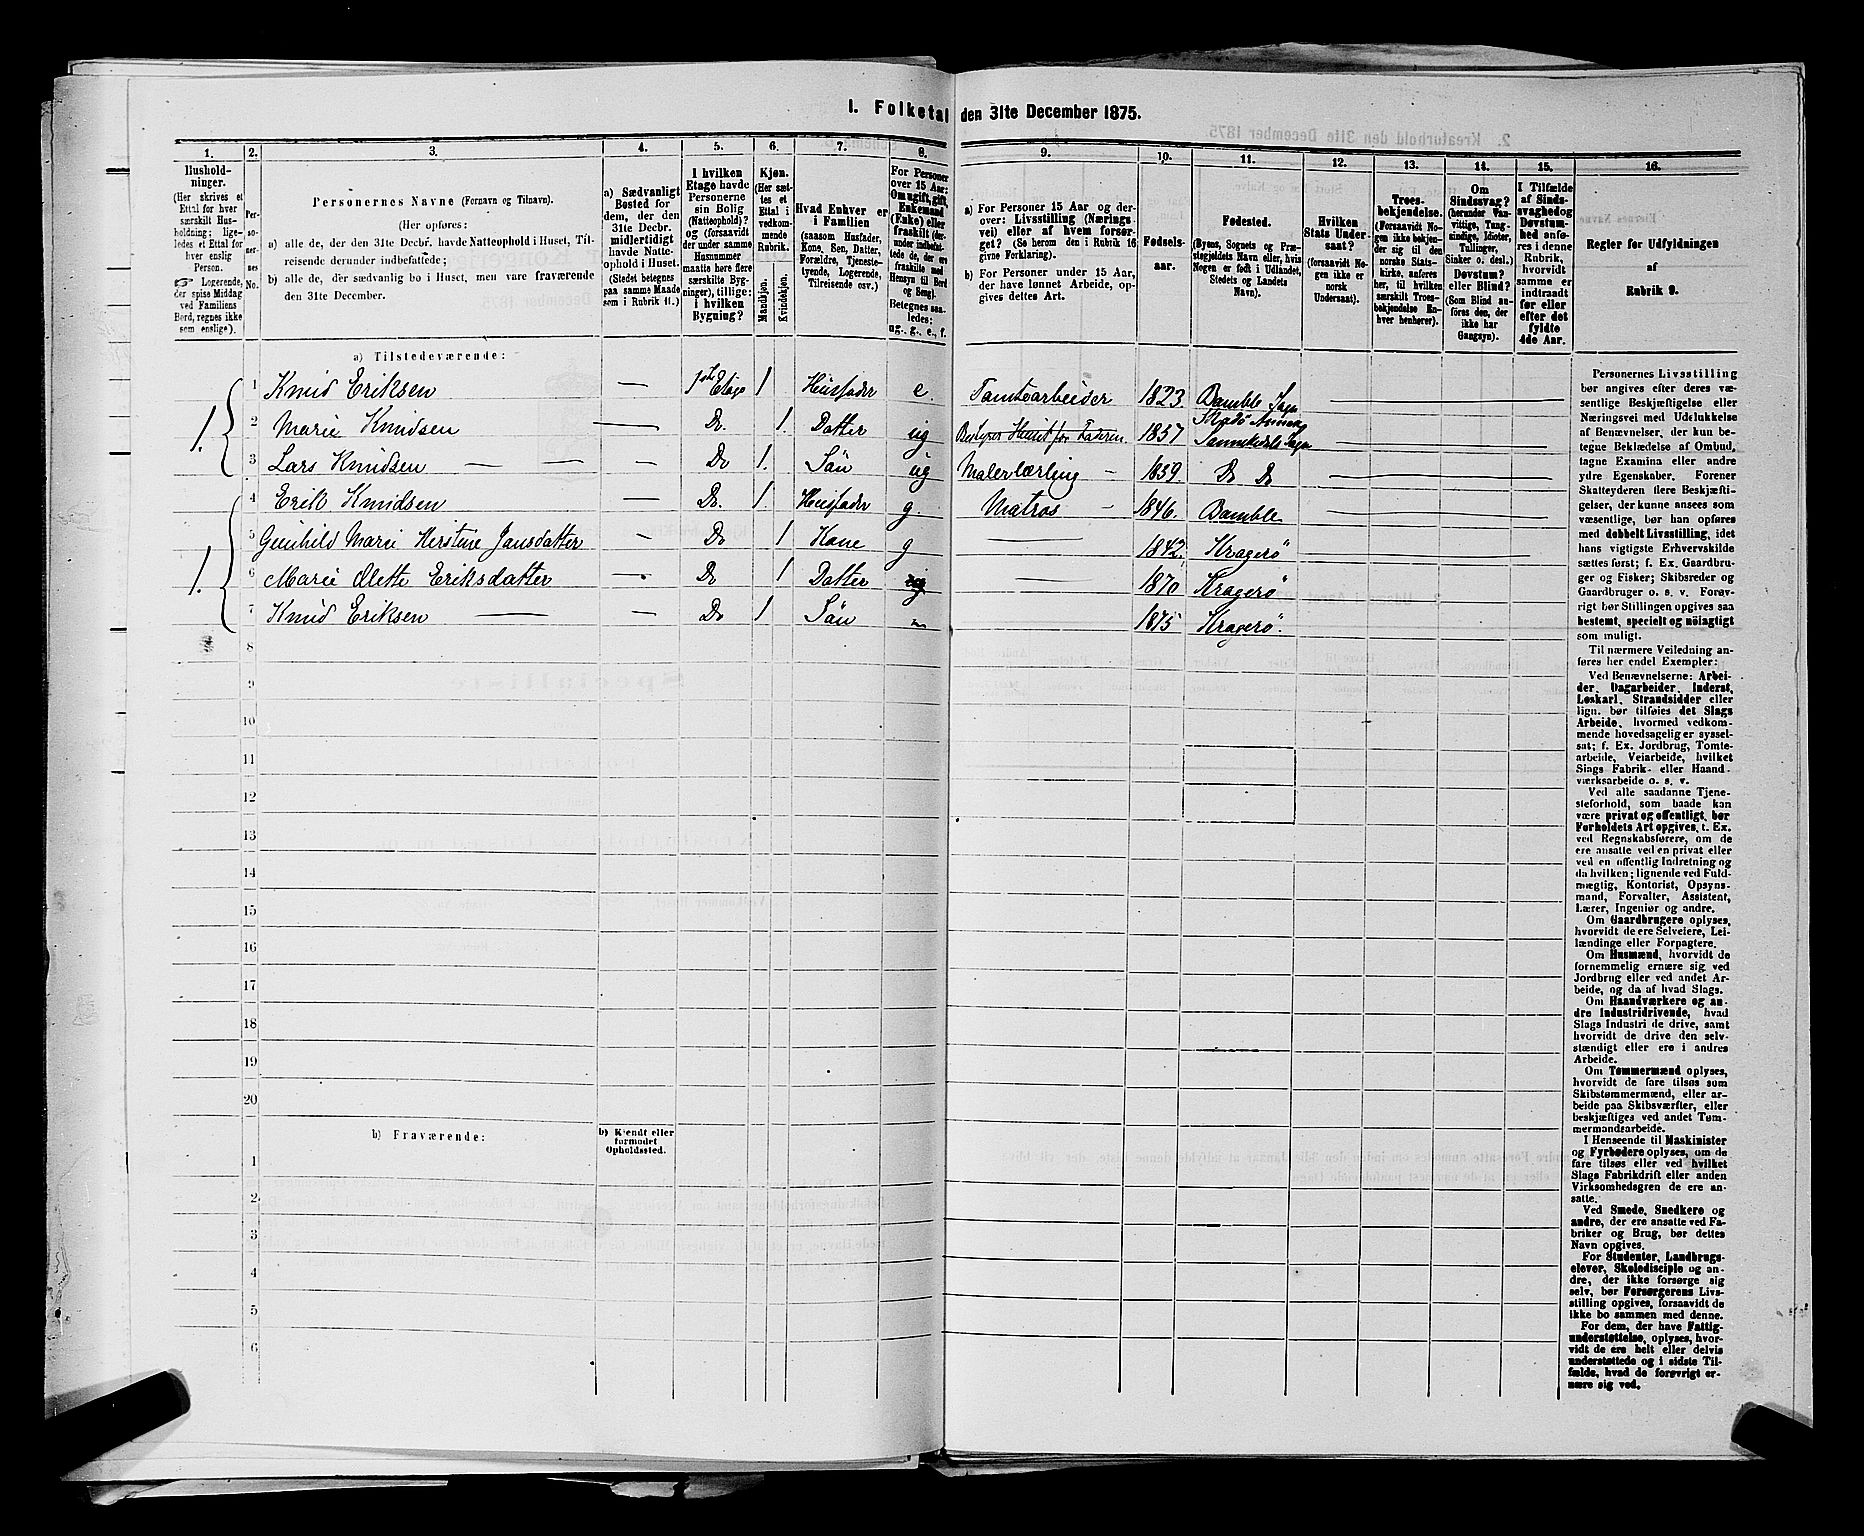 1. Folketal den 31te December 1875.
1. 2. 3. 4. 5. 6. 7. 8. 9. 10. 11. 12. 13. 14. 15. 16.
Hushold-
ninger.
(Her skrives et
Ettal for hver
særskilt Hus-
holdning; lige-
ledes et Ettal for
hver enslig
Person.
☞ Logerende,
der spise Middag
ved Familiens
Bord, regnes ikke
som enslige).
Per-
so-
ner-
nes
No.
Personernes Navne (Fornavn og Tilnavn).
(Her opføres:
a) alle de, der den 31te Decbr. havde Natteophold i Huset, Til-
reisende derunder indbefattede;
b) alle de, der sædvanlig bo i Huset, men vare fraværende
den 31te December.
a) Sædvanligt
Bosted for
dem, der den
31te Decbr.
midlertidigt
havde Natte-
ophold i Huset.
(Stedet betegnes
paa samme Maade
som i Rubrik 11.)
I hvilken
Etage havde
Personerne
sin Bolig
(Natteophold)?
og (forsaavidt
der under samme
Husnummer
maatte høre flere
særskilte Byg-
ninger), tillige:
i hvilken
Bygning?
Kjøn.
(Her sæt-
tes et
Ettal i
vedkom-
mende
Rubrik.
Mandkjøn.
Kvindekjøn.
Hvad Enhver er
i Familien
(saasom Husfader,
Kone, Søn, Datter,
Forældre, Tjeneste-
tyende, Logerende,
Tilreisende osv.)
For Personer
over 15 Aar:
Om ugift, gift,
Enkemand
(Enke) eller
fraskilt
Betegnes saa-
ledes:
ug., g., e., f.
a) For Personer 15 Aar og der-
over: Livsstilling (Nærings-
vei) eller af hvem forsør-
get? (Se herom den i Rubrik 16
givne Forklaring).
b) For Personer under 15 Aar,
der have lønnet Arbeide, op-
gives dettes Art.
Fødsels-
aar.
Fødested.
(Byens, Sognets og Præ-
stegjeldets Navn eller, hvis
Nogen er født i Udlandet,
Stedets og Landets
Navn).
Hvilken
Stats Under-
saat?
(forsaavidt No-
gen ikke er
norsk
Undersaat).
Troes-
bekjendelse.
(Forsaavidt No-
gen ikke bekjen-
der sig til den
norske Stats-
kirke, anføres
her, til hvilken
særskilt Troes-
bekjendelse En-
hver henhører).
Om
Sindssvag?
(herunder Van-
vittige, Tung-
sindige, Idioter,
Tullinger,
Sinker o. desl.)
Døvstum?
eller Blind?
(Som Blind an-
føres den, der
ikke har
Gangsyn).
I Tilfælde
af Sinds-
svaghed og
Døvstum-
hed anfø-
res i denne
Rubrik,
hvorvidt
samme er
indtraadt
før eller
efter det
fyldte
4de Aar.
Regler for Udfyldningen
af
Rubrik 9.
a) Tilstedeværende:
1 Knud Eriksen — 1ste Etage 1 Husfader e Tomtearbeider 1823. Bamble Sogn
1. 2 Marie Knudsen — Do. 1. Datter ug Bestyrer Huset for Faderen. 1857 Sannikedals Sogn
3 Lars Knudsen — — — Do 1. Søn ug Malerlærling — 1859. Do Do
4 Erik Knudsen — Do. 1. Husfader g. Matros — 1846. Bamble
5 Gunhild Marie Kerstine Jansdatter — Do 1 Kone g — 1842. Kragerö
1. 6 Marie Olette Eriksdatter — Do 1 Datter — 1870 Kragerö
7 Knud Eriksen — — Do 1 Søn 1875 Kragerö.
8
9
10
11
12
13
14
15
16
17
18
19
20
b) Fraværende:
b) Kjendt eller
formodet
Opholdssted.
1
2
3
4
5
6
Personernes Livsstilling
bør angives efter deres væ-
sentlige Beskjæftigelse eller
Næringsvei med Udelukkelse
af Benævnelser, der kun be-
tegne Beklædelse af Ombud,
tagne Examina eller andre
ydre Egenskaber. Forener
Skatteyderen flere Beskjæfti-
gelser, der kunne ansees som
væsentlige, bør han opføres
med dobbelt Livsstilling, idet
hans vigtigste Erhvervskilde
sættes først; f. Ex. Gaardbru-
ger og Fisker; Skibsreder og
Gaardbruger o. s. v. Forøv-
rigt bør Stillingen opgives saa
bestemt, specielt og nöiagtigt
som muligt.
Til nærmere Veiledning an-
føres her endel Exempler:
Ved Benævnelserne: Arbei-
der, Dagarbeider, Inderst,
Løskarl, Strandsidder eller
lign. bør tilføies det Slags
Arbeide, hvormed vedkom-
mende hovedsagelig er syssel-
sat; f. Ex. Jordbrug, Tomte-
arbeide, Veiarbeide, hvilket
Slags Fabrik- eller Haand-
værksarbeide o. s. v.
Ved alle saadanne Tjene-
steforhold, som baade kan
være privat og offentligt, bør
Forholdets Art opgives, t. Ex.
ved Regnskabsførere, om de
ere ansatte ved en privat eller
ved en offentlig Indretning og
da hvilken; lignende ved Fuld-
mægtig, Kontorist, Opsyns-
mand, Forvalter, Assistent,
Lærer, Ingeniør og andre.
Om Gaardbrugere oplyses,
hvorvidt de ere Selveiere, Lei-
lændinge eller Forpagtere.
Om Husmænd, hvorvidt de
fornemmelig ernære sig ved
Jordbrug eller ved andet Ar-
beide, og da af hvad Slags.
Om Haandværkere og an-
dre Industridrivende, hvad
Slags Industri de drive, samt
hvorvidt de drive den selv-
stændigt eller ere i andres
Arbeide.
Om Tømmermænd oplyses,
hvorvidt de fare tilsøs som
Skibstømmermænd, eller ar-
beide paa Skibsværfter, eller
beskjæftiges ved andet Tøm-
mermandsarbeide.
I Henseende til Maskinister
og Fyrbødere oplyses, om de
fare tilsøs eller ved hvilket
Slags Fabrikdrift eller anden
Virksomhedsgren de ere an-
satte.
Ved Smede, Snedkere og
andre, der ere ansatte ved Fa-
briker og Brug, bør dettes
Navn opgives.
For Studenter, Landbrugs-
elever, Skoledisciple og an-
dre, der ikke forsørge sig
selv, bør Forsørgerens Livs-
stilling opgives, forsaavidt de
ikke bo sammen med denne.
For dem, der have Fattig-
understøttelse, oplyses, hvor-
vidt de ere helt eller delvis
understøttede og i sidste Til-
fælde, hvad de forøvrigt er-
nære sig ved.